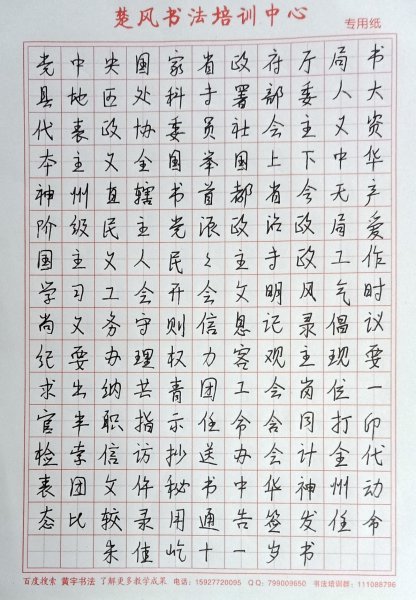 楚风书法培训中心
专用纸
党中央国家省政府厅局书
县地区处科乡署部委人大
代表政协委员社会主义资
本主义全国举国上下中华
神州直辖书首都省会无产
阶级民主党派政治政局爱
国主义人民々主专政工作
学习工会开会文明风气时
尚义务守则信息记录倡议
纪要办理权力客观主现要
求出纳共青团工会岗位一
官半职指示任命合同打印
检索信访抄送办会计全代
表团文件秘书中华神州动
态比较录用通告签发任命
朱佳屹十一岁书
百度搜索 黄宇书法 了解更多教学成果 电话：15927720095 QQ：799009650 书法培训群：111088796